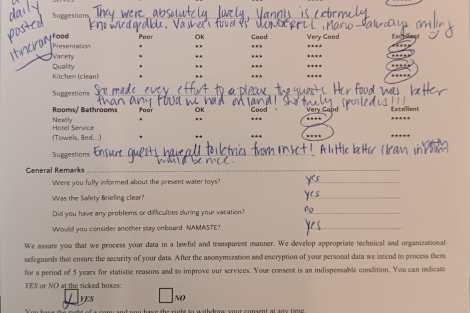 a
daily
posted
itinerary
Suggestions They were absolutely lovely. Yannis is extremely
knowledgeable. Vashen's food is wonderful. Mario always smiling
Food Poor OK Good Very Good Excellent
Presentation * ** *** **** *****
Variety * ** *** **** *****
Quality * ** *** **** *****
Kitchen (clean) * ** *** **** *****
Suggestions She made every effort to please the guests. Her food was better
than any food we had on land! She truly spoiled us!!!
Rooms/ Bathrooms Poor OK Good Very Good Excellent
Neatly * ** *** **** *****
Hotel Service
(Towels, Bed,..) * ** *** **** *****
Suggestions Ensure guests have all toiletries from onset! A little better clean in room
would be nice.
General Remarks
Were you fully informed about the present water toys? yes
Was the Safety Briefing clear? yes
Did you have any problems or difficulties during your vacation? no
Would you consider another stay onboard NAMASTE? yes
We assure you that we process your data in a lawful and transparent manner. We develop appropriate technical and organizational
safeguards that ensure the security of your data. After the anonymization and encryption of your personal data we intend to process them
for a period of 5 years for statistic reasons and to improve our services. Your consent is an indispensable condition. You can indicate
YES or NO at the ticked boxes:
YES NO
You have the right of a copy and you have the right to withdraw your consent at any time.